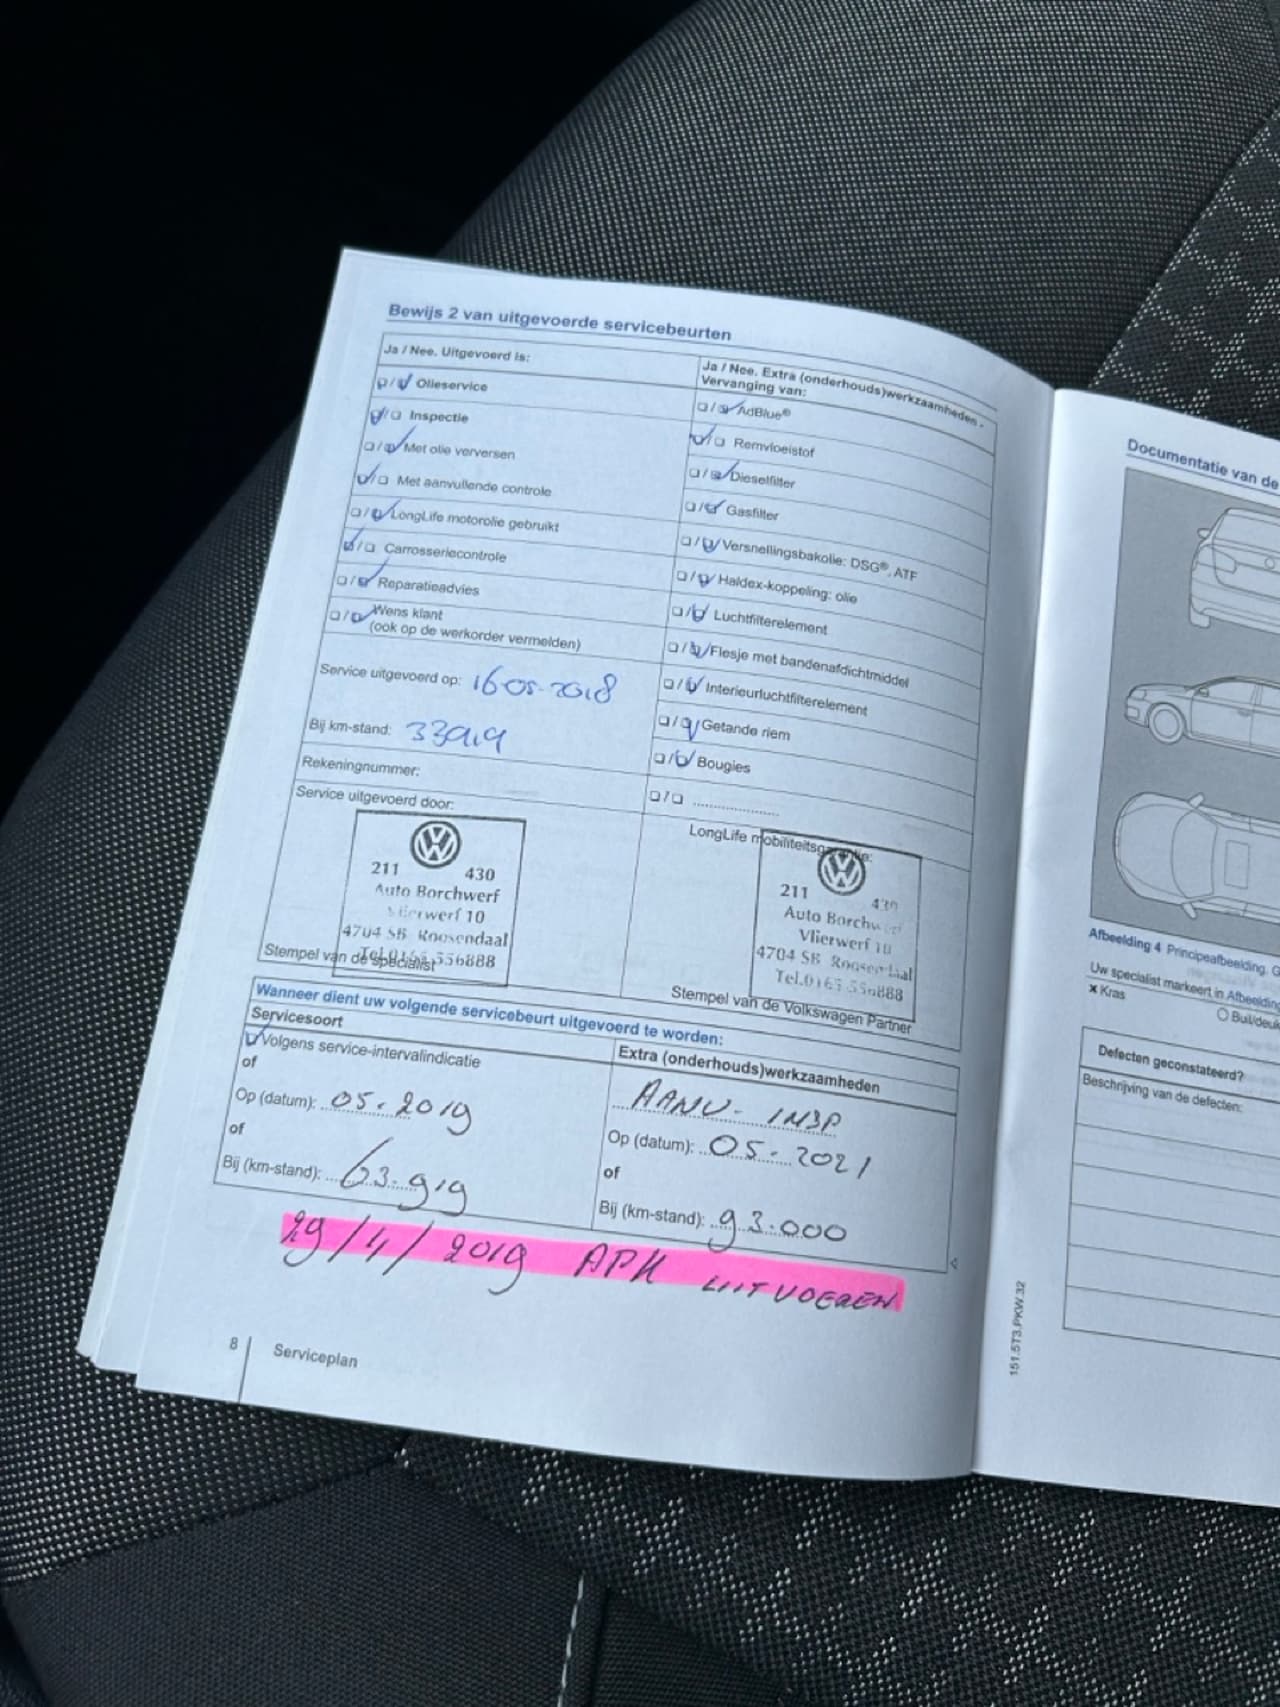 Bewijs 2 van uitgevoerde servicebeurten
Ja / Nee. Uitgevoerd is:
❑/❑ Olieservice
❑/❑ Inspectie
❑/❑ Met olie verversen
❑/❑ Met aanvullende controle
❑/❑ LongLife motorolie gebruikt
❑/❑ Carrosseriecontrole
❑/❑ Reparatieadvies
❑/❑ Wens klant
(ook op de werkorder vermelden)
Service uitgevoerd op: 16-05-2018
Bij km-stand: 33919
Rekeningnummer:
Service uitgevoerd door:
211 430
Auto Borchwerf
Vlierwerf 10
4704 SB Roosendaal
Tel.0165 556888
Stempel van de specialist
Ja / Nee. Extra (onderhouds)werkzaamheden -
Vervanging van:
❑/❑ AdBlue®
❑/❑ Remvloeistof
❑/❑ Dieselfilter
❑/❑ Gasfilter
❑/❑ Versnellingsbakolie: DSG®, ATF
❑/❑ Haldex-koppeling: olie
❑/❑ Luchtfilterelement
❑/❑ Flesje met bandenafdichtmiddel
❑/❑ Interieurluchtfilterelement
❑/❑ Getande riem
❑/❑ Bougies
❑/❑ ....................
LongLife mobiliteitsgarantie:
211 430
Auto Borchwerf
Vlierwerf 10
4704 SB Roosendaal
Tel.0165 556888
Stempel van de Volkswagen Partner
Wanneer dient uw volgende servicebeurt uitgevoerd te worden:
Servicesoort
Volgens service-intervalindicatie
of
Op (datum): 05-2019
of
Bij (km-stand): 63.919
Extra (onderhouds)werkzaamheden
AANV- INSP
Op (datum): 05-2021
of
Bij (km-stand): 93.000
29/4/2019 APK UITVOEREN
8
Serviceplan
Documentatie van de
Afbeelding 4 Principeafbeelding. G
Uw specialist markeert in Afbeelding
× Kras
Defecten geconstateerd?
Beschrijving van de defecten:
151.5T3.PKW.32